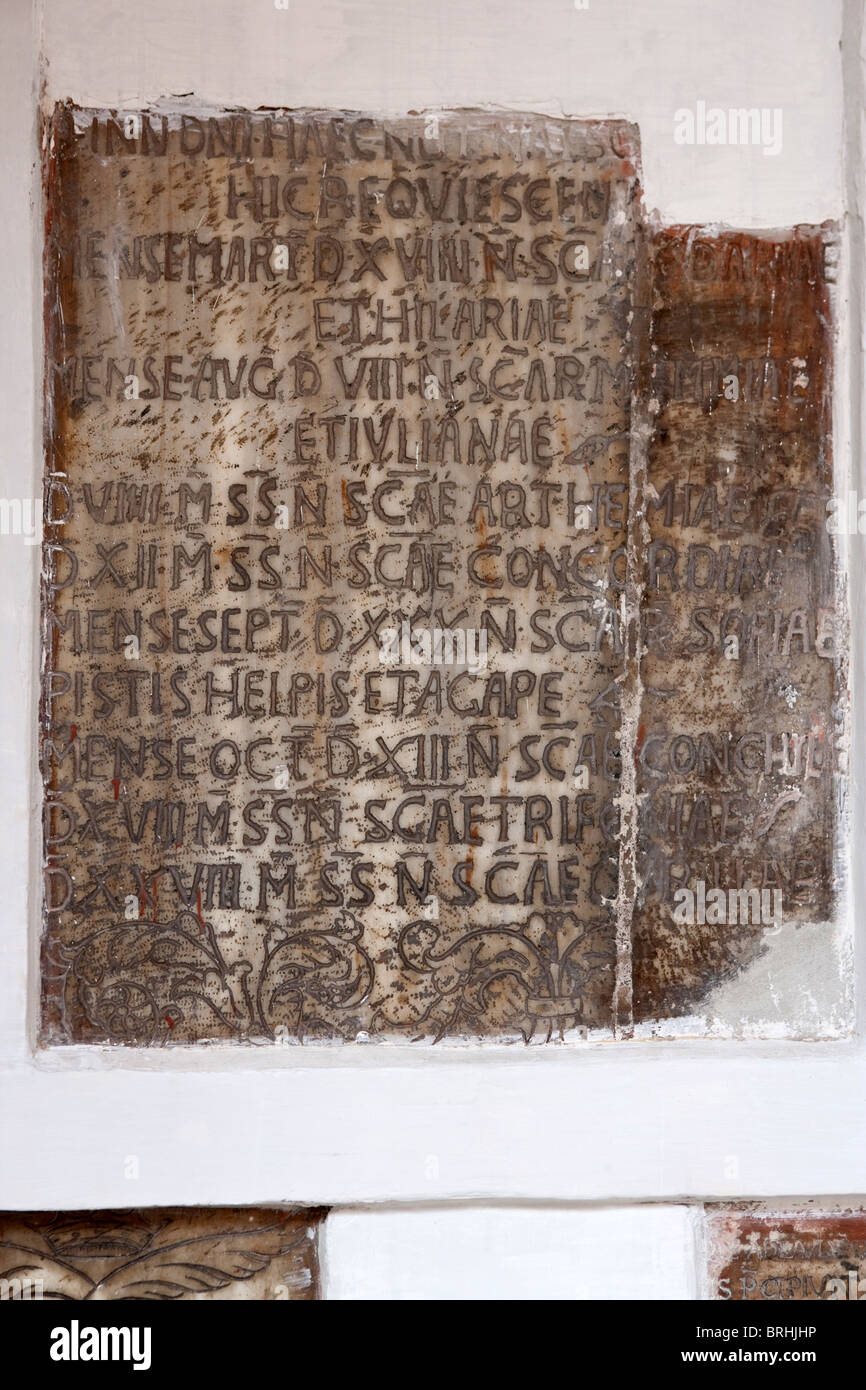 INN DNI HAEC
HIC REQVIESCEN
MENSE MART̄ D̄ XVIIII N̄ SC̄A DARIAE
ET HILARIAE
MENSE AVḠ D̄ VIII N̄ SC̄AR
ET IVLIANAE
D VIIII M̄ SS̄ N̄ SC̄AE ARTHEMIAE ET
D XII M̄ SS̄ N̄ SC̄AE CONCORDIAE
MENSE SEPT̄ D̄ XXX N̄ SC̄AR̄ SOFIAE
PISTIS HELPIS ET AGAPE
MENSE OCT̄ D̄ XIII N̄ SC̄AE
D XVIII M̄ SS̄ N̄ SC̄AE TRIFONIAE
D XXVIII M̄ SS̄ N̄ SC̄AE
alamy
alamy
Image ID: BRHJHP
www.alamy.com